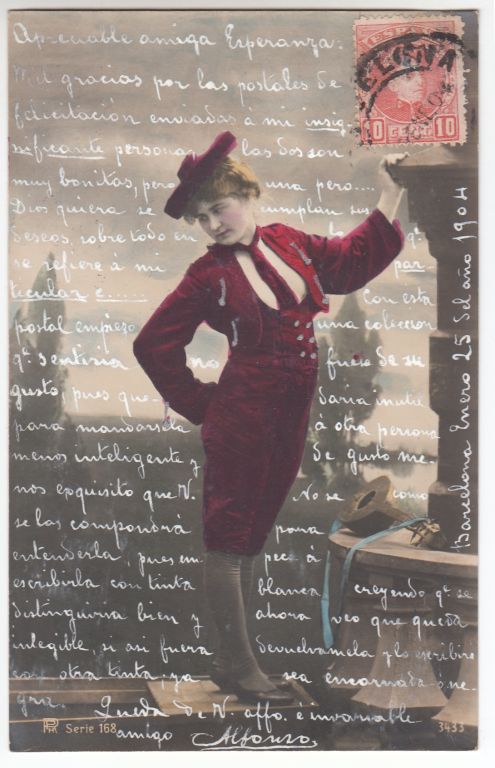 Apreciable amiga Esperanza:
Mil gracias por las postales de
felicitación enviadas á mi insig-
nificante persona las dos son
muy bonitas, pero una pero....
Dios quiera se cumplan sus
deseos, sobre todo en q.
se refiere á mi par-
ticular e...... Con esta
postal empiezo una coleccion
q.e sentiria no fuere de su
gusto, pues que- daria inutil
para mandarsela á otra persona
menos inteligente y de gusto me-
nos exquisito que V. No se como
se las compondrá para
entenderla, pues em pecé á
escribirla con tinta blanca creyendo q.e se
distinguiria bien y ahora veo que queda
inlegible, si asi fuera devuelvamela y la escribiré
con otra tinta; ya sea encarnada ó ne-
gra. Queda de V. affo. é invariable
amigo Alfonso.
Barcelona Enero 25 del año 1904
ESPAÑA
10 CENT.s 10
PM
Serie 168
3433